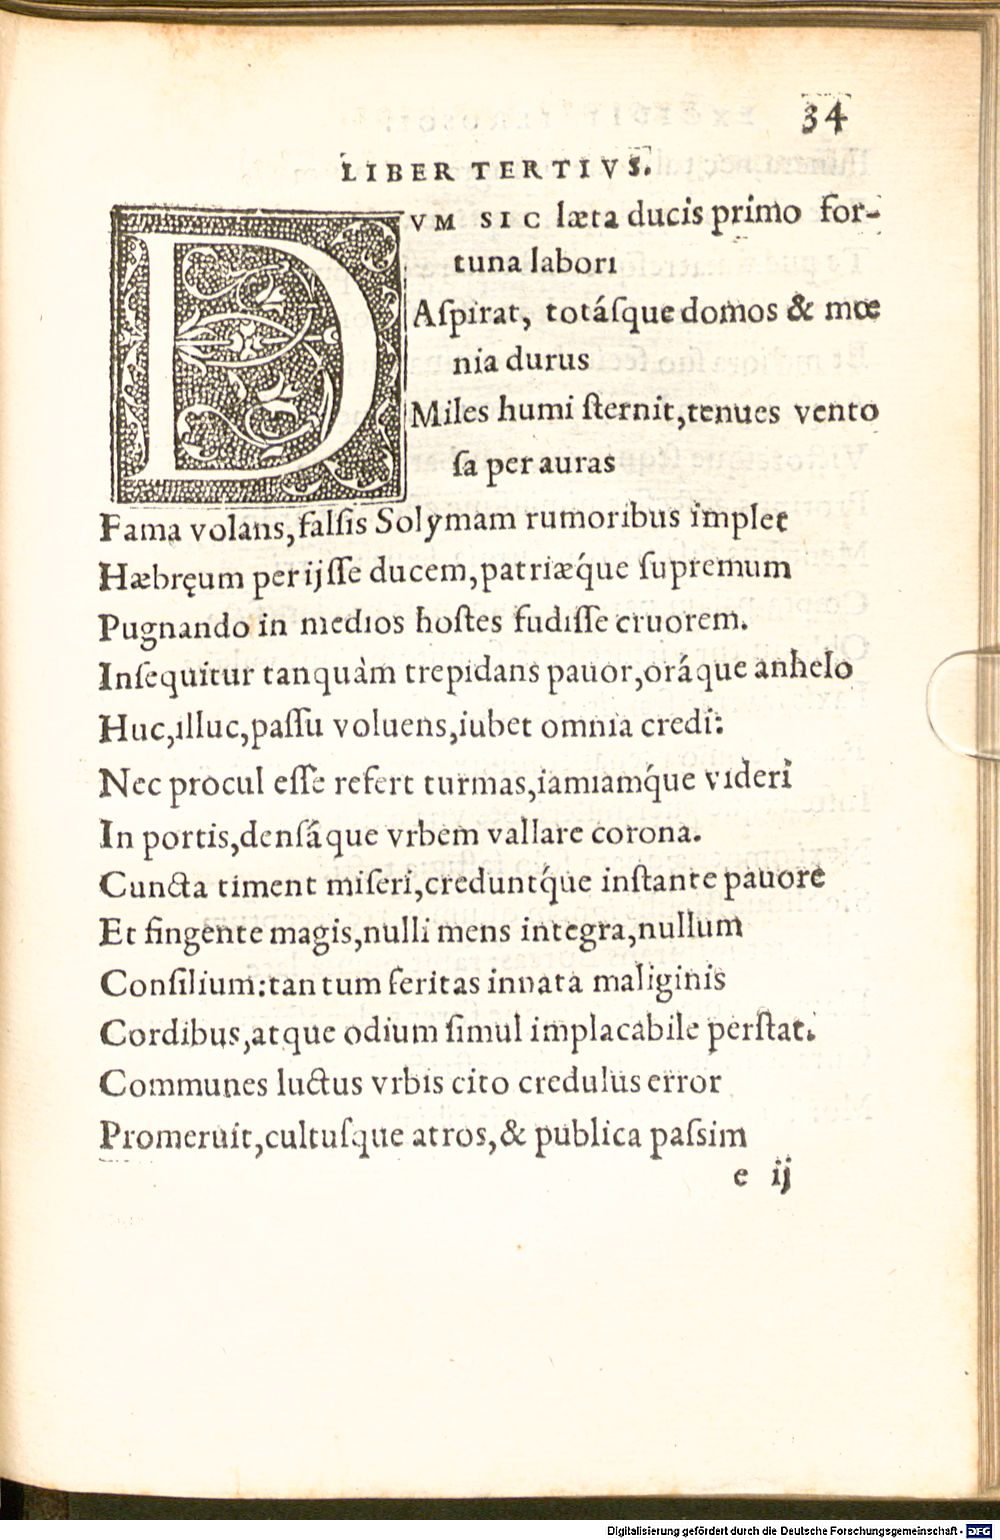 34
LIBER TERTIVS.
DVM SIC læta ducis primo for-
tuna labori
Aſpirat, totáſque domos & mœ
nia durus
Miles humi ſternit, tenues vento
ſa per auras
Fama volans, falſis Solymam rumoribus implet
Hæbręum perijſſe ducem, patriæq́ue ſupremum
Pugnando in medios hoſtes fudiſſe cruorem.
Inſequitur tanquàm trepidans pauor, oráque anhelo
Huc, illuc, paſſu voluens, iubet omnia credi:
Nec procul eſſe refert turmas, iamiamq́ue videri
In portis, denſáque vrbem vallare corona.
Cuncta timent miſeri, creduntq́ue inſtante pauore
Et fingente magis, nulli mens integra, nullum
Conſilium: tantum feritas innata maliginis
Cordibus, atque odium ſimul implacabile perſtat.
Communes luctus vrbis cito credulus error
Promeruit, cultuſque atros, & publica paſsim
e ij
Digitalisierung gefördert durch die Deutsche Forschungsgemeinschaft - DFG